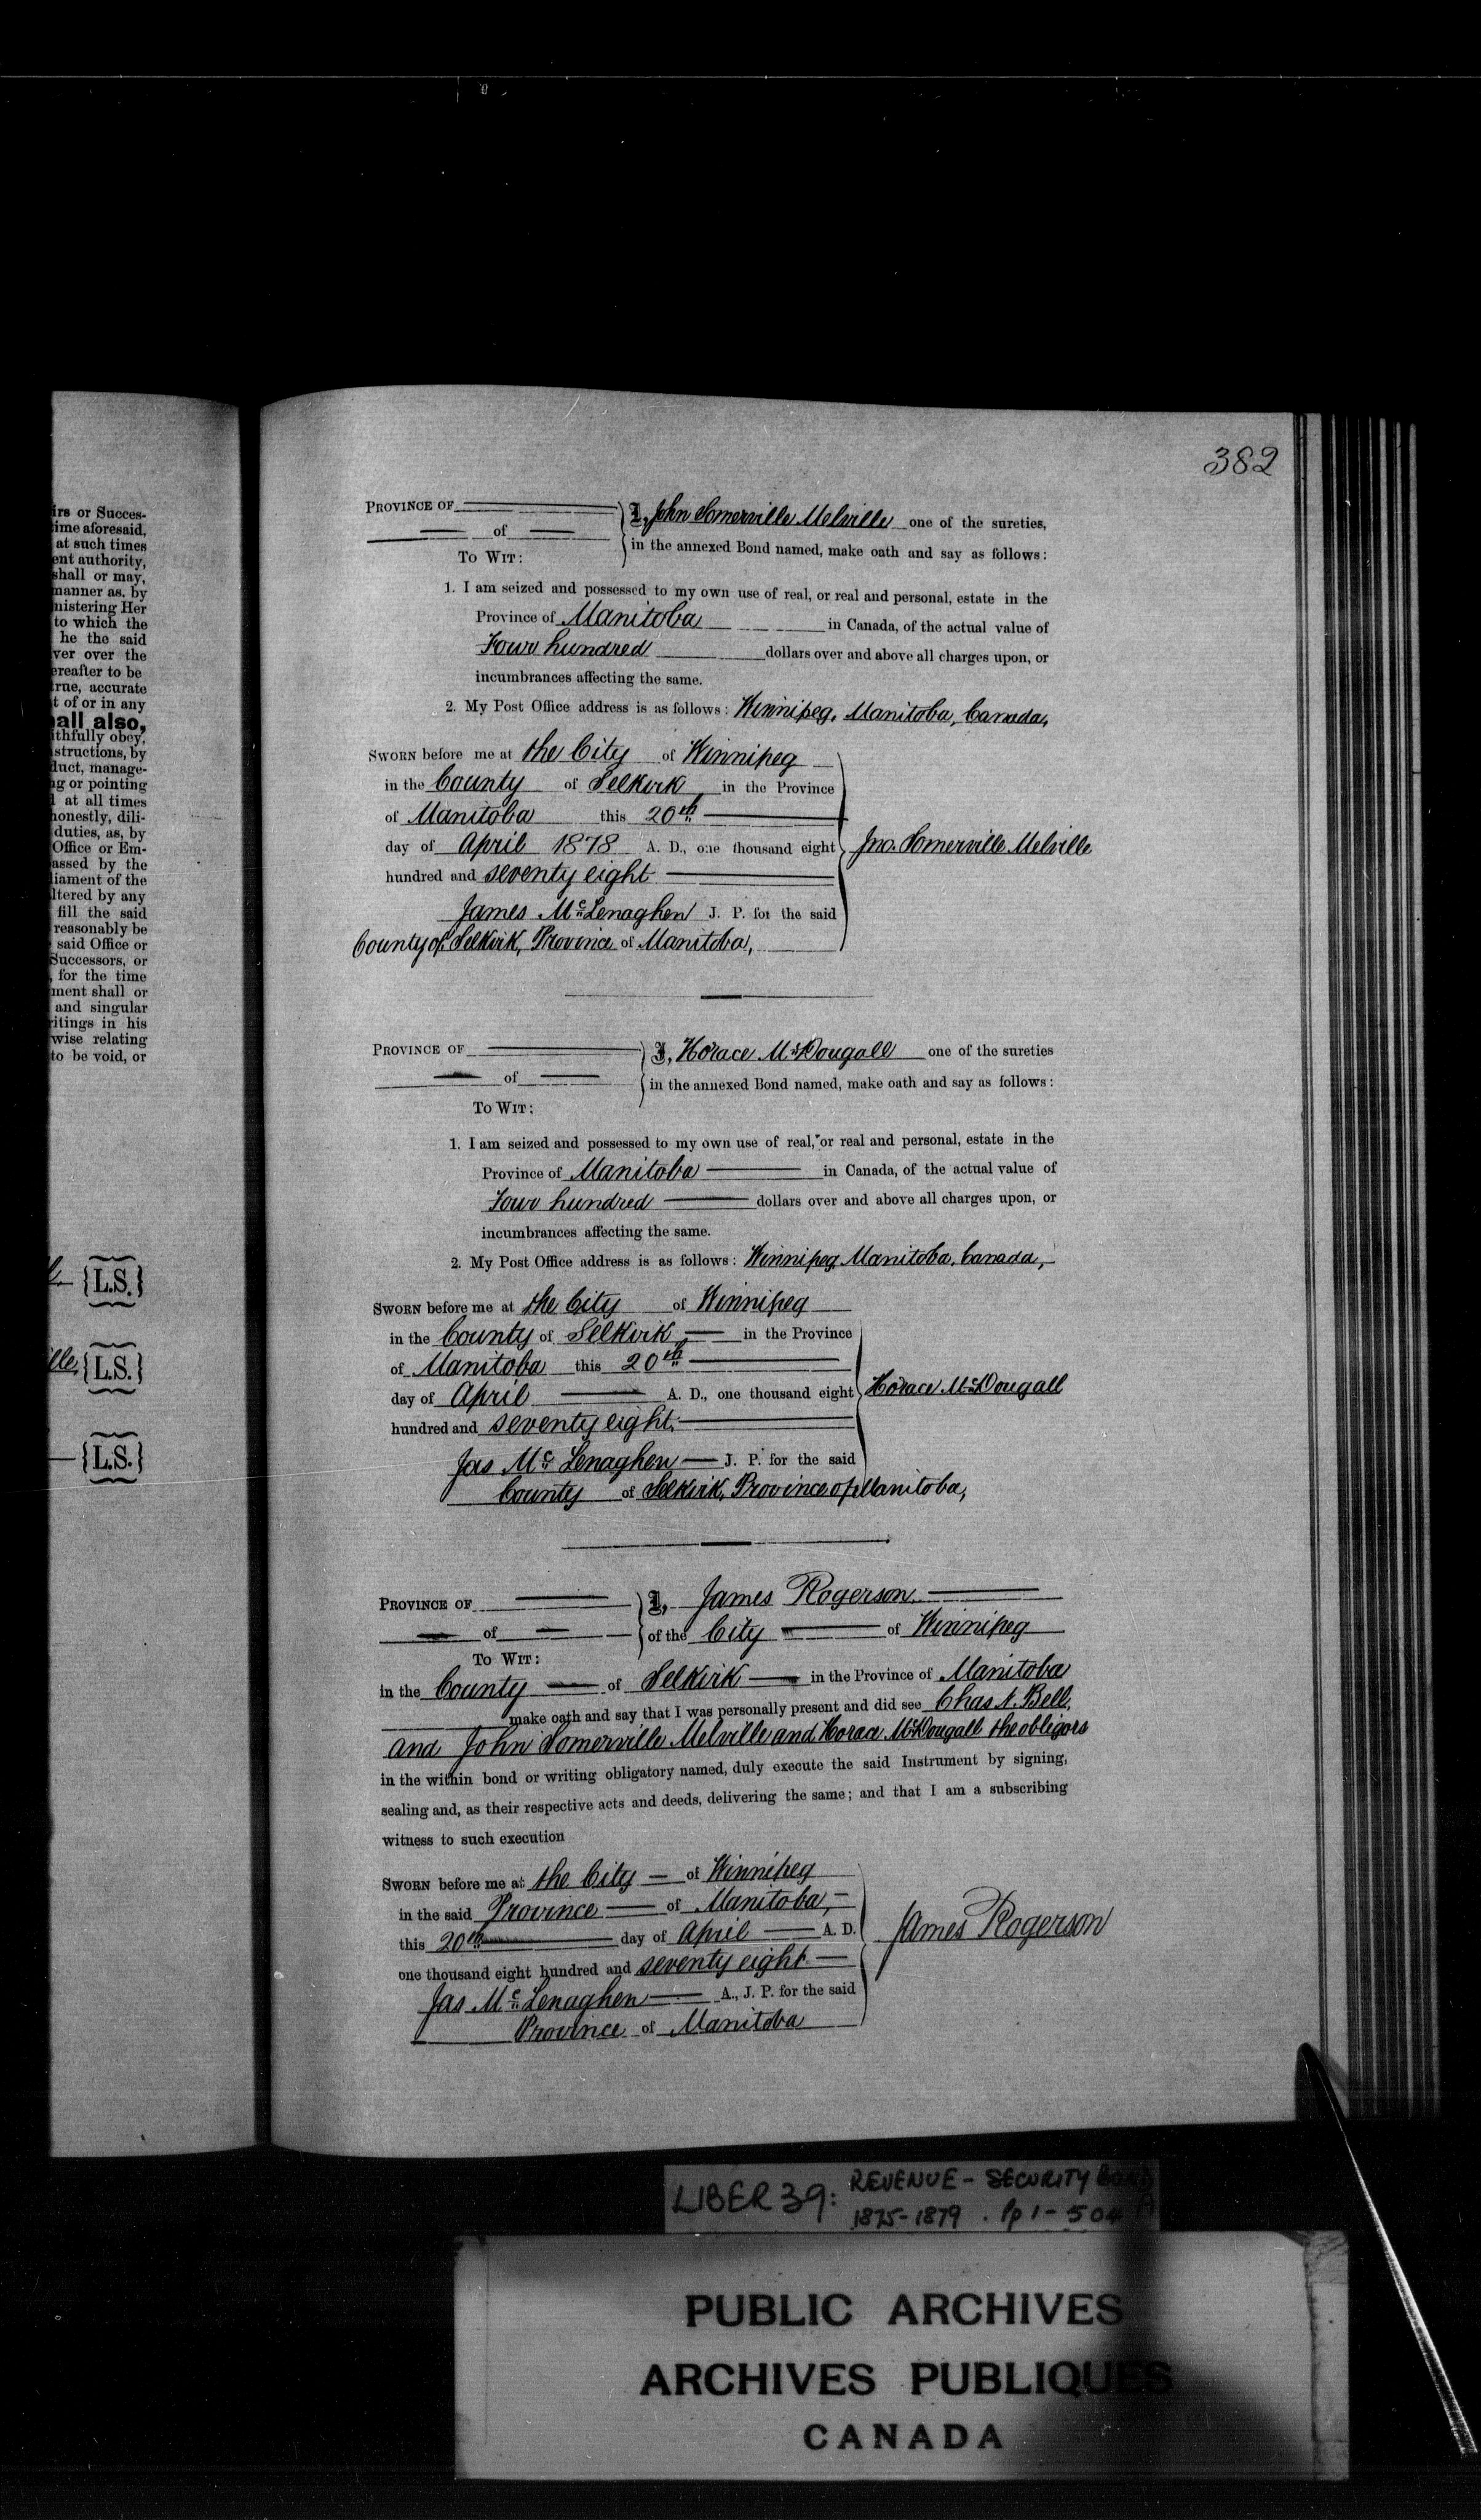 irs or Succes-
ime aforesaid,
at such times
ent authority,
shall or may,
manner as, by
nistering Her
to which the
he the said
ver over the
ereafter to be
rue, accurate
t of or in any
all also,
ithfully obey,
structions, by
duct, manage-
ng or pointing
at all times
honestly, dili-
duties, as, by
Office or Em-
assed by the
liament of the
ltered by any
fill the said
reasonably be
said Office or
Successors, or
, for the time
ment shall or
and singular
ritings in his
wise relating
to be void, or
{L.S.}
lle, {L.S.}
{L.S.}
382
PROVINCE OF
of
TO WIT:
I, John Somerville Melville one of the sureties,
in the annexed Bond named, make oath and say as follows:
1. I am seized and possessed to my own use of real, or real and personal, estate in the
Province of Manitoba in Canada, of the actual value of
Four hundred dollars over and above all charges upon, or
incumbrances affecting the same.
2. My Post Office address is as follows: Winnipeg, Manitoba, Canada,
SWORN before me at the City of Winnipeg
in the County of Selkirk in the Province
of Manitoba this 20th
day of April 1878 A. D., one thousand eight
hundred and seventy eight
James McLenaghen J. P. for the said
County of Selkirk, Province of Manitoba,
Jno. Somerville Melville
PROVINCE OF
of
TO WIT:
I, Horace McDougall one of the sureties
in the annexed Bond named, make oath and say as follows:
1. I am seized and possessed to my own use of real, or real and personal, estate in the
Province of Manitoba in Canada, of the actual value of
Four hundred dollars over and above all charges upon, or
incumbrances affecting the same.
2. My Post Office address is as follows: Winnipeg, Manitoba, Canada,
SWORN before me at the City of Winnipeg
in the County of Selkirk in the Province
of Manitoba this 20th
day of April A. D., one thousand eight
hundred and seventy eight.
Jas McLenaghen J. P. for the said
County of Selkirk, Province of Manitoba,
Horace McDougall
PROVINCE OF
of
TO WIT:
I, James Rogerson
of the City of Winnipeg
in the County of Selkirk in the Province of Manitoba
make oath and say that I was personally present and did see Chas N. Bell,
and John Somerville Melville and Horace McDougall the obligors
in the within bond or writing obligatory named, duly execute the said Instrument by signing,
sealing and, as their respective acts and deeds, delivering the same; and that I am a subscribing
witness to such execution
SWORN before me at the City of Winnipeg
in the said Province of Manitoba,
this 20th day of April A. D.
one thousand eight hundred and seventy eight
Jas McLenaghen A., J. P. for the said
Province of Manitoba
James Rogerson
LIBER 39: REVENUE - SECURITY BOND
1875-1879. Pp 1-504 A
PUBLIC ARCHIVES
ARCHIVES PUBLIQUES
CANADA